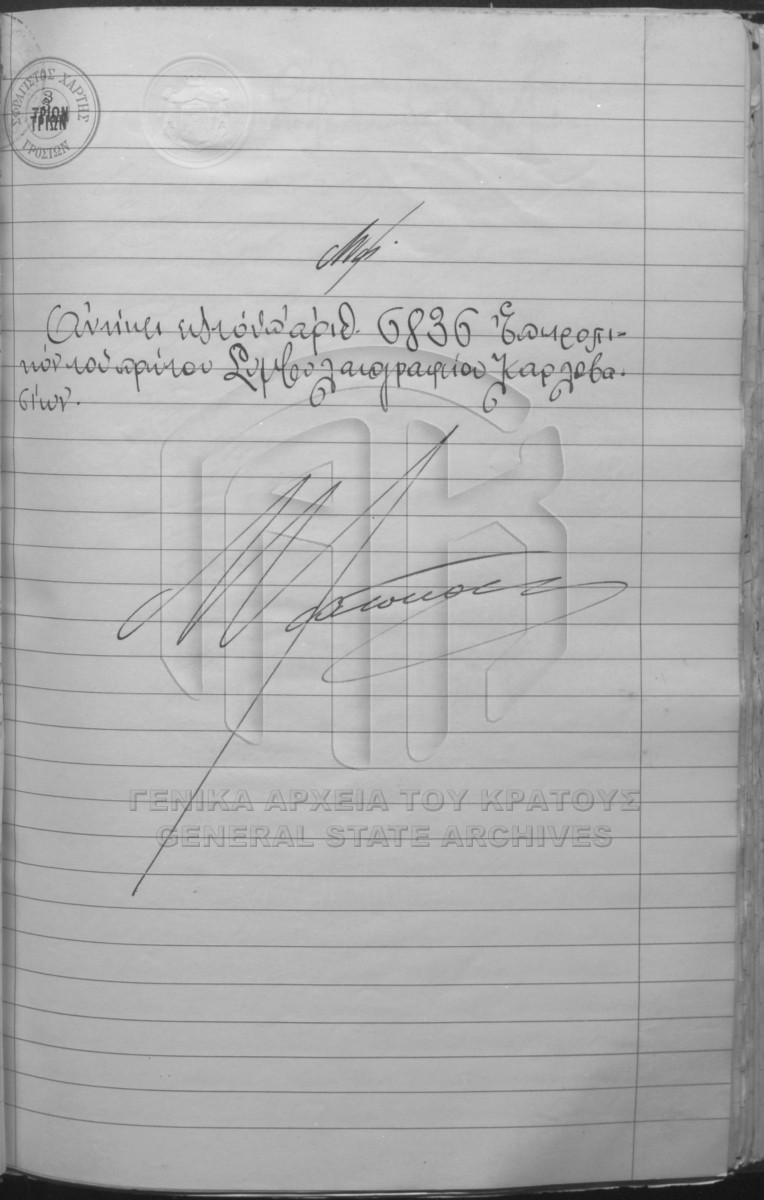 ΣΦΡΑΓΙΣΤΟΣ ΧΑΡΤΗΣ
3
ΤΡΙΩΝ
ΤΡΙΩΝ
ΓΡΟΣΙΩΝ
Ἀνήκει εἰς τὸ ὑπ' ἀριθ. 6836 Ἐπιτροπι-
κὸν τοῦ πρώτου Συμβολαιογραφείου Καρλοβα-
σίων.
ΓΕΝΙΚΑ ΑΡΧΕΙΑ ΤΟΥ ΚΡΑΤΟΥΣ
GENERAL STATE ARCHIVES